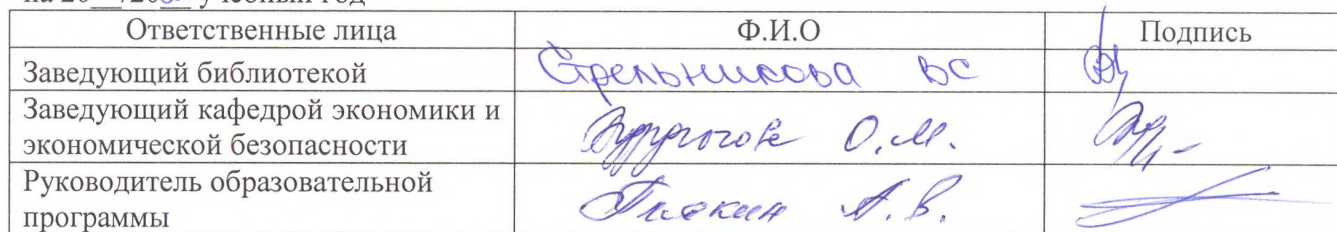 на 20__/20__ учебный год
Ответственные лица Ф.И.О Подпись
Заведующий библиотекой Стрельникова ВС
Заведующий кафедрой экономики и
экономической безопасности О.М.
Руководитель образовательной
программы А.В.